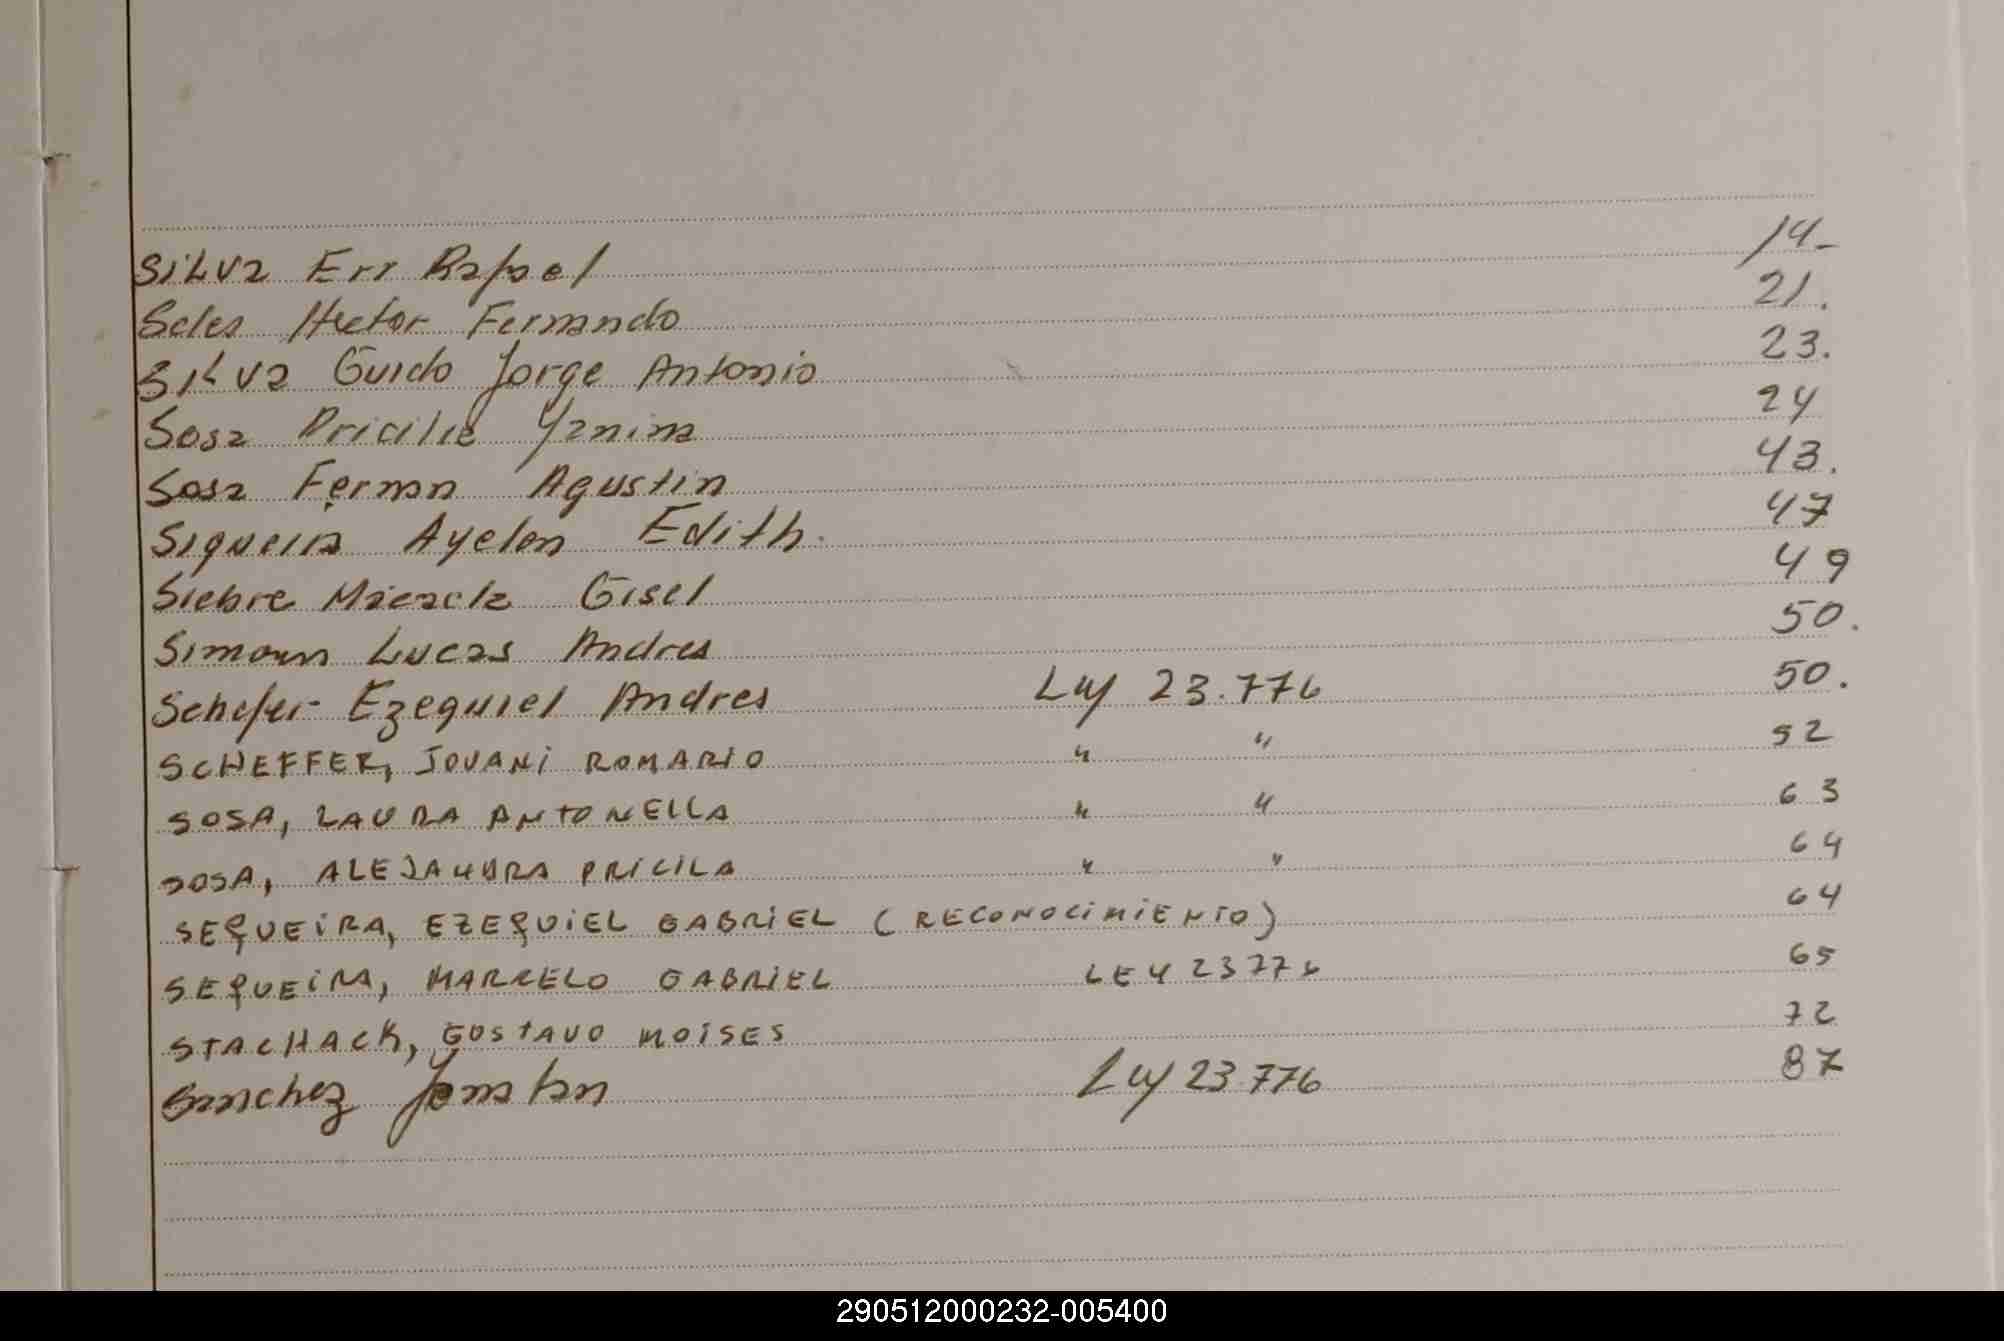 Silva Err Rafael 14-
Seles Hector Fernando 21.
Silva Guido Jorge Antonio 23.
Sosa Pricilia Yanina 24
Sosa Fernan Agustin 43.
Siqueira Ayelen Edith. 47
Siebre Micaela Gisel 49
Simonn Lucas Andres 50.
Schefer Ezequiel Andres Ley 23.776 50.
SCHEFFER, JOVANI ROMARIO " " 52
SOSA, LAURA ANTONELLA " " 63
SOSA, ALEJANDRA PRICILA " " 64
SEQUEIRA, EZEQUIEL GABRIEL (RECONOCIMIENTO) 64
SEQUEIRA, MARCELO GABRIEL LEY 23776 65
STACHACK, GUSTAVO MOISES 72
Sanchez Jonatan Ley 23.776 87
290512000232-005400